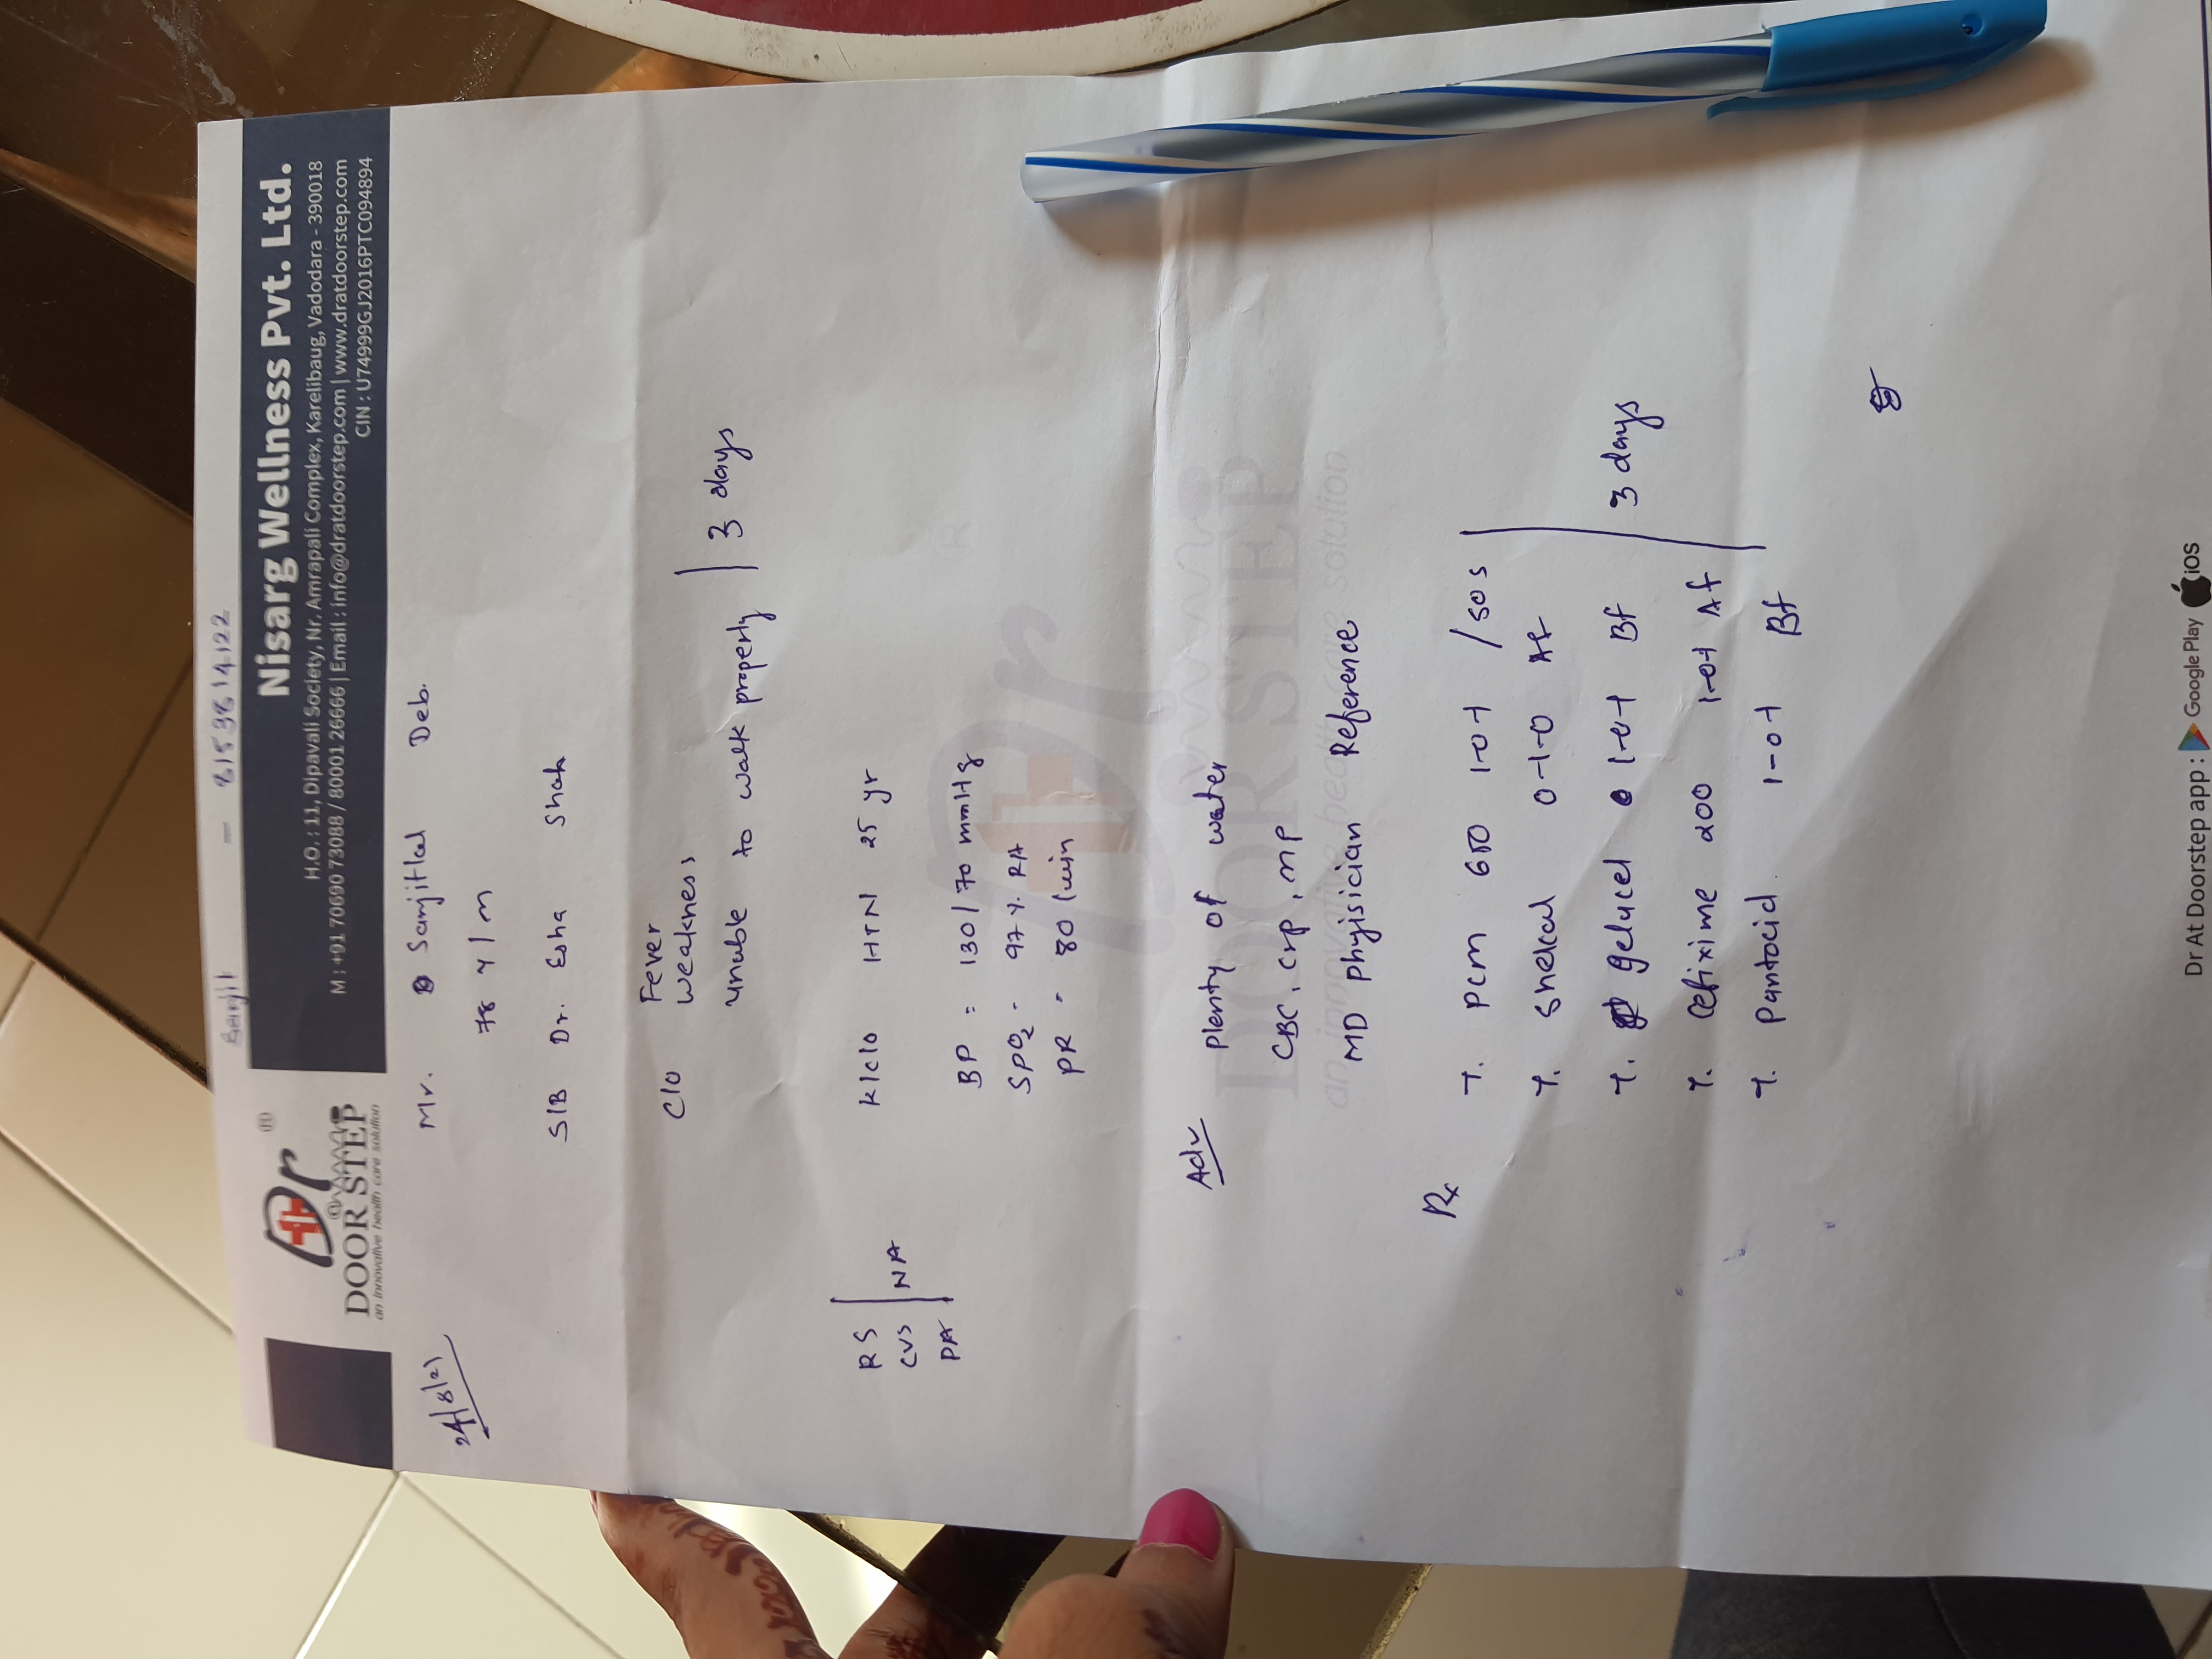 Sanjit - 8153814122
Dr ®
@
DOOR STEP
an innovative health care solution
Nisarg Wellness Pvt. Ltd.
H.O. : 11, Dipavali Society, Nr. Amrapali Complex, Karelibaug, Vadodara - 390018
M : +91 70690 73088 / 80001 26666 | Email : info@dratdoorstep.com | www.dratdoorstep.com
CIN : U74999GJ2016PTC094894
24/8/21
Mr. Sanjitlal Deb.
78 Y/M
S/B Dr. Esha Shah
C/O Fever
weakness
unable to walk properly
3 days
RS
CVS
PA
NA
K/C/O HTN 25 yr
BP = 130/70 mmHg
SPO2 - 97 %. RA
PR - 80 /min
Dr ®
DOOR STEP
an innovative health care solution
Adv plenty of water
CBC, crp, mp
MD phyisician Reference
Rx
T. pcm 650 1-0-1 /sos
T. Shelcal 0-1-0 Af
T. gelucel 1-0-1 Bf
T. Cefixime 200 1-0-1 Af
T. Pantocid 1-0-1 Bf
3 days
Dr At Doorstep app : Google Play iOS